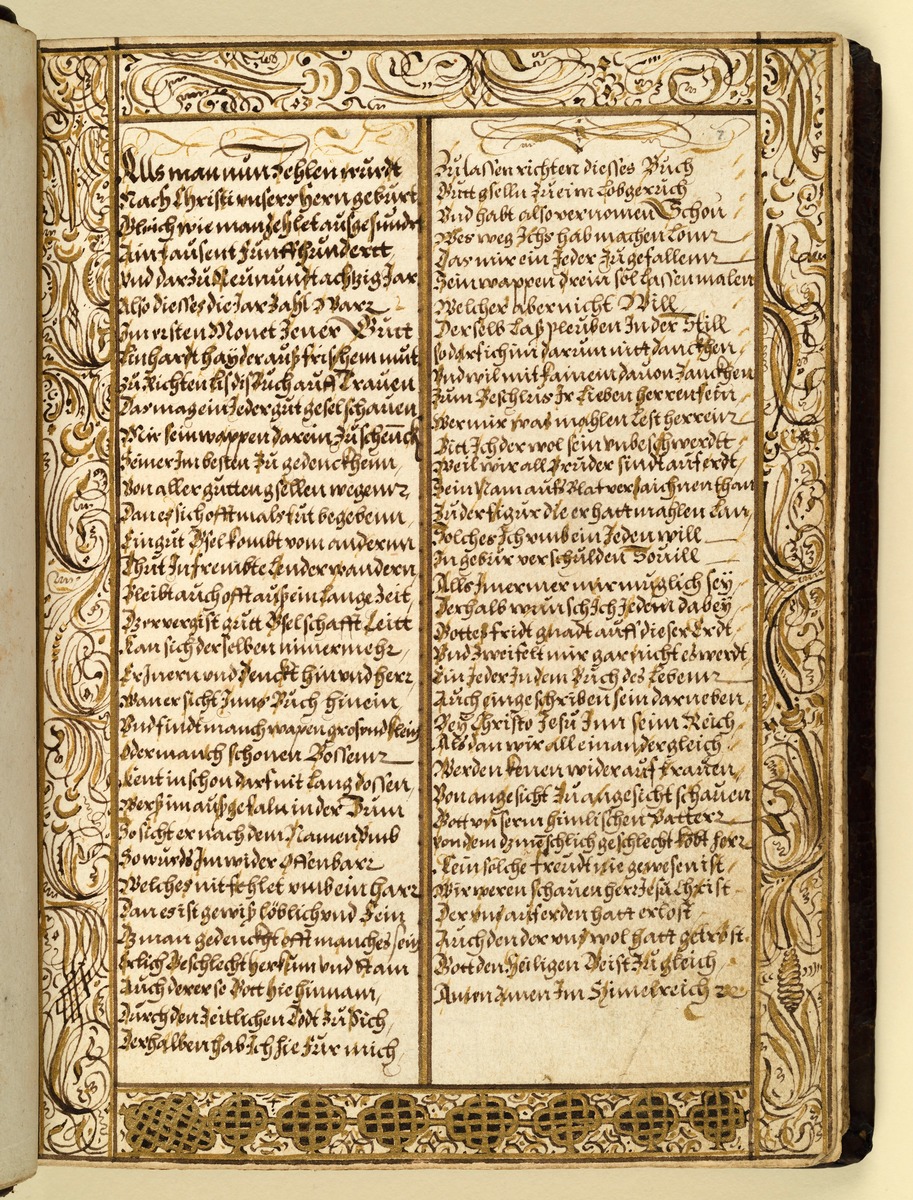 Alls man nun Zehlen wurdt
Nach Christi unsers Hern geburt
Gleich wie man Zehlet aus gesundt
Ain Tausent Funff hundertt
Und dar Zu Neun und achzig Jar
Also dieses die Jar Zahl War
Im ersten Monet Jener Gutt
Linhardt hayder auß frischem mut
Zu Richten lis dis Buch auff Trauen
Das mag ein Jeder gut gesel schauen
Mir sein wappen darein Zu schenck
Seiner Im besten Zu gedenckhenn
Von aller gutten gsellen wegenn
Dan es sich offtmals tut begebenn
Ein gut Gsel kombt vom andernn
Thut In frembte Lender wandern
Bleibt auch offt auß ein Lange Zeit
Der vergist gutt Gselschafft Leitt
Kan sich derselben nimermehr
ErJnern und Denckt hin und herr
Wan er sicht Inns Buch hinein
Und findt manch wapen gros und klein
Oder manch schonen Bossenn
Kent in schon darf nit Lang dossen
Werß im auß gefaln in der Sum
So sicht er nach dem Namen Umb
So wurds Im wider Offenbarr
Welches nit fehlet umb ein harr
Dan es ist gewiß löblich und Fein
Dz man gedenckht offt manches sein
Erlich Geschlecht herkum und Stam
Auch derer so Gott hie hinnam
Durch den Zeitlichen Todt Zu Sich
Derhalben hab Ich hie Fur mich
7
Zu lassen richten dieses Buch
Gutt gselln Zu eim Lobgeruch
Und habt also vernomen Schon
Wes weg Ichs hab machen Lonn
Das mir ein Jeder Zu gefallenn
Sein wappen drein sol Lassen malen
Welcher aber nicht Will
Derselb Laß pleuben In der Still
so darf ich im darum nitt danckhen
Und wil mit kainem darvon Zanckhen
Zum Beschlus Ir Lieben herren fein
Wer mir was mahlen Lest herrein
Bitt Ich der wol sein unbeschwerdtt
Weil wir all Bruder sindt auf erdt
Sein Nam aufs Blat verzaichnen than
Zu der figur die er hatt mahlen Lan
Solches Ich umb ein Jeden will
In gebür verschulden So vill
Alls Jmermer mir müglich seÿ
Derhalb wunsch Ich Jedem dabeÿ
Gottes fridt gnadt auff dieser Erdt
Und Zweifelt mir gar nicht es werdt
Ein Jeder In dem Buch des Lebenn
Auch eingeschriben sein darneben
Beÿ Christo Jesu Inn seim Reich
Als dan wir all einander gleich
Werden kenen wider auf trauen
Von angesicht Zu angesicht schauen
Gott unserm himlischen Vatterr
von dem dz menschlich geschlecht köbt herr
Kein solche freudt nie gewesen ist
Wir weren schauen herr Jesu Christ
Der uns auf erden hatt erlost
Auch den der uns wol hatt getröst
Gott den Heiligen Geist Zu gleich
Amen Amen Im Himelreich